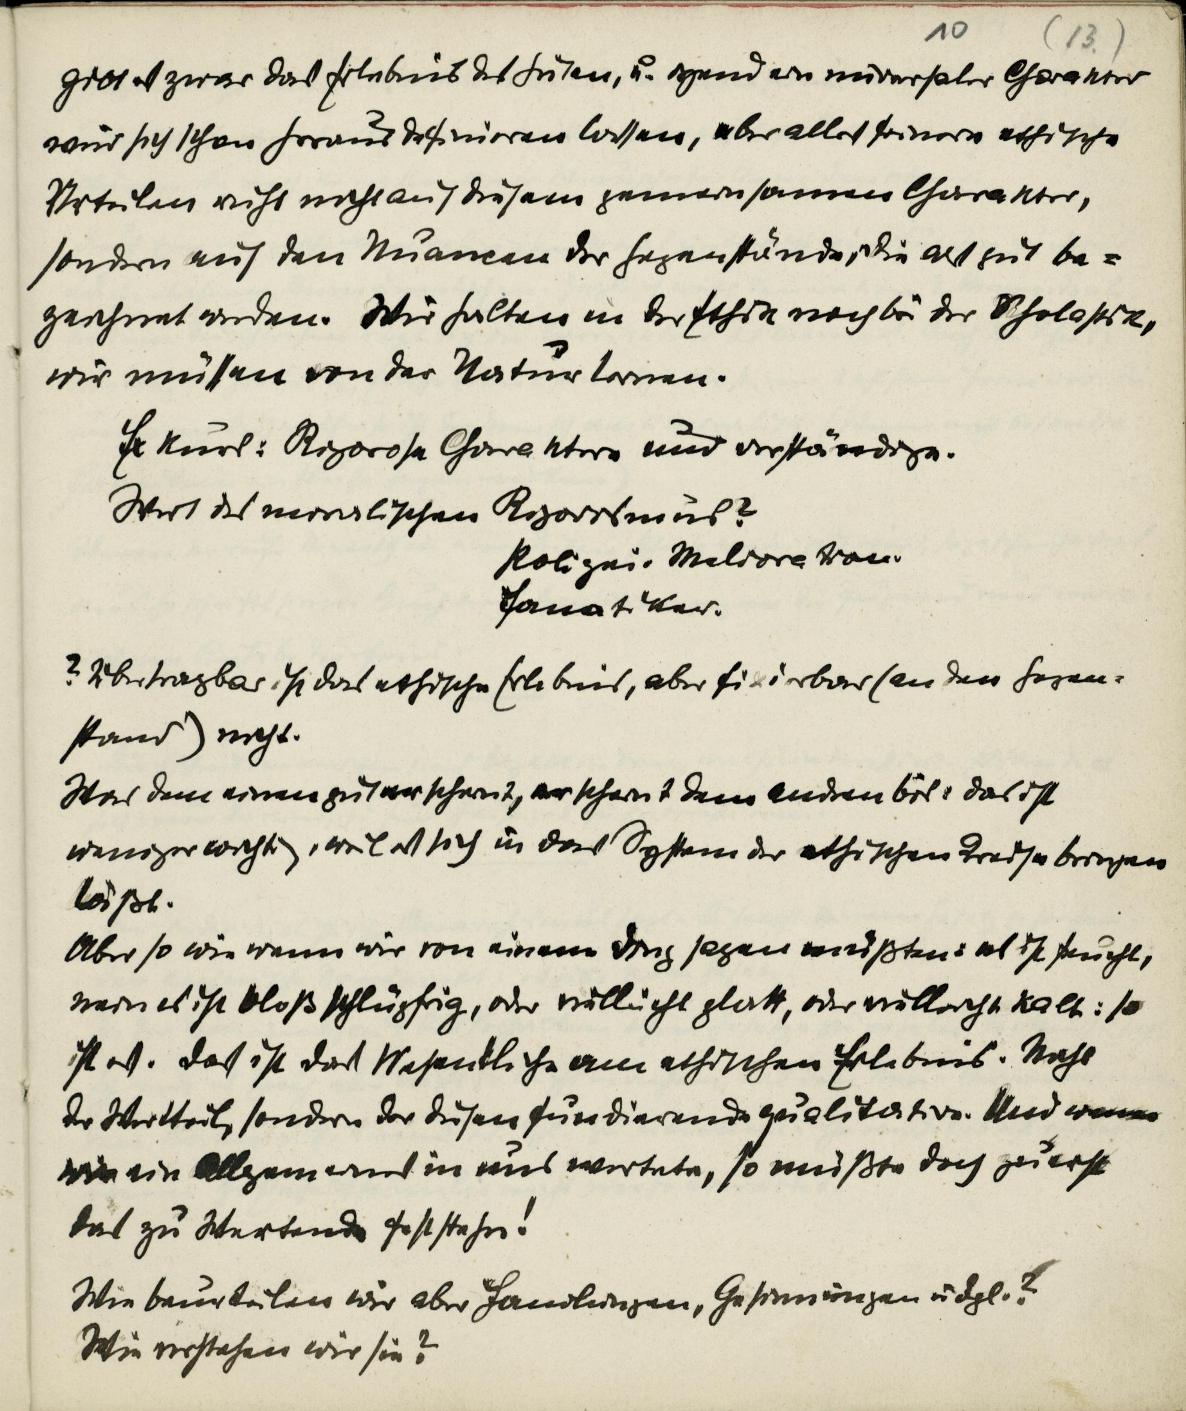 10 (13.)
gibt es zwar das Erlebnis des Guten, u. irgend ein universaler Charakter
wird sich schon herausdefinieren lassen, aber alles feinere ethische
Urteilen ruht nicht auf diesem gemeinsamen Charakter,
sondern auf den Nuancen der Gegenstände, die als gut be=
zeichnet werden. Wir halten in der Ethik noch bei der Scholastik,
wir müssen von der Natur lernen.
Exkurs: Rigorose Charaktere und verständige.
Wert des moralischen Rigorismus?
Polizei. Melioration.
Fanatiker.
? Übertragbar ist das ethische Erlebnis, aber fixierbar (an den Gegen=
stand) nicht.
Was dem einen gut erscheint, erscheint dem andren bös: das ist
weniger wichtig, weil es sich in das System der ethischen Kreise bringen
läßt.
Aber so wie wenn wir von einem Ding sagen müßten: es ist feucht,
nein es ist bloß schlüpfrig, oder vielleicht glatt, oder vielleicht kalt: so
ist es. Das ist das Wesentliche am ethischen Erlebnis. Nicht
der Wertteil, sondern der diesen fundierende qualitative. Und wenn
wir ein Allgemeines in uns wertete, so müßte doch zuerst
das zu Wertende feststehn!
Wie beurteilen wir aber Handlungen, Gesinnungen udgl.?
Wie verstehen wir sie?